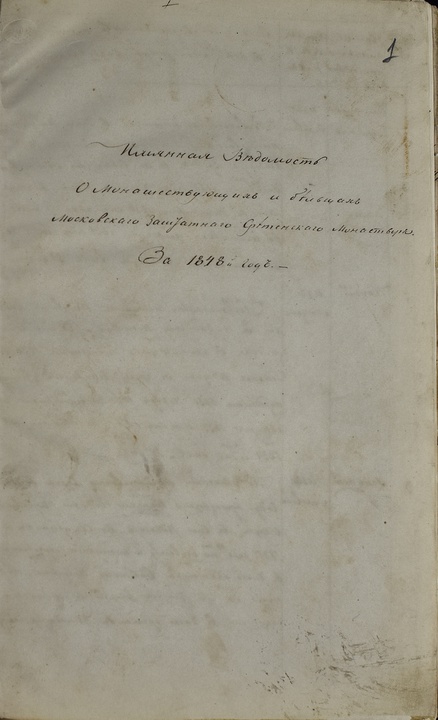 1
Имянная Вѣдомость
О Монашествующихъ и бѣльцахъ
Московскаго Заштатнаго Срѣтенскаго Монастыря.
За 1848й годъ.—